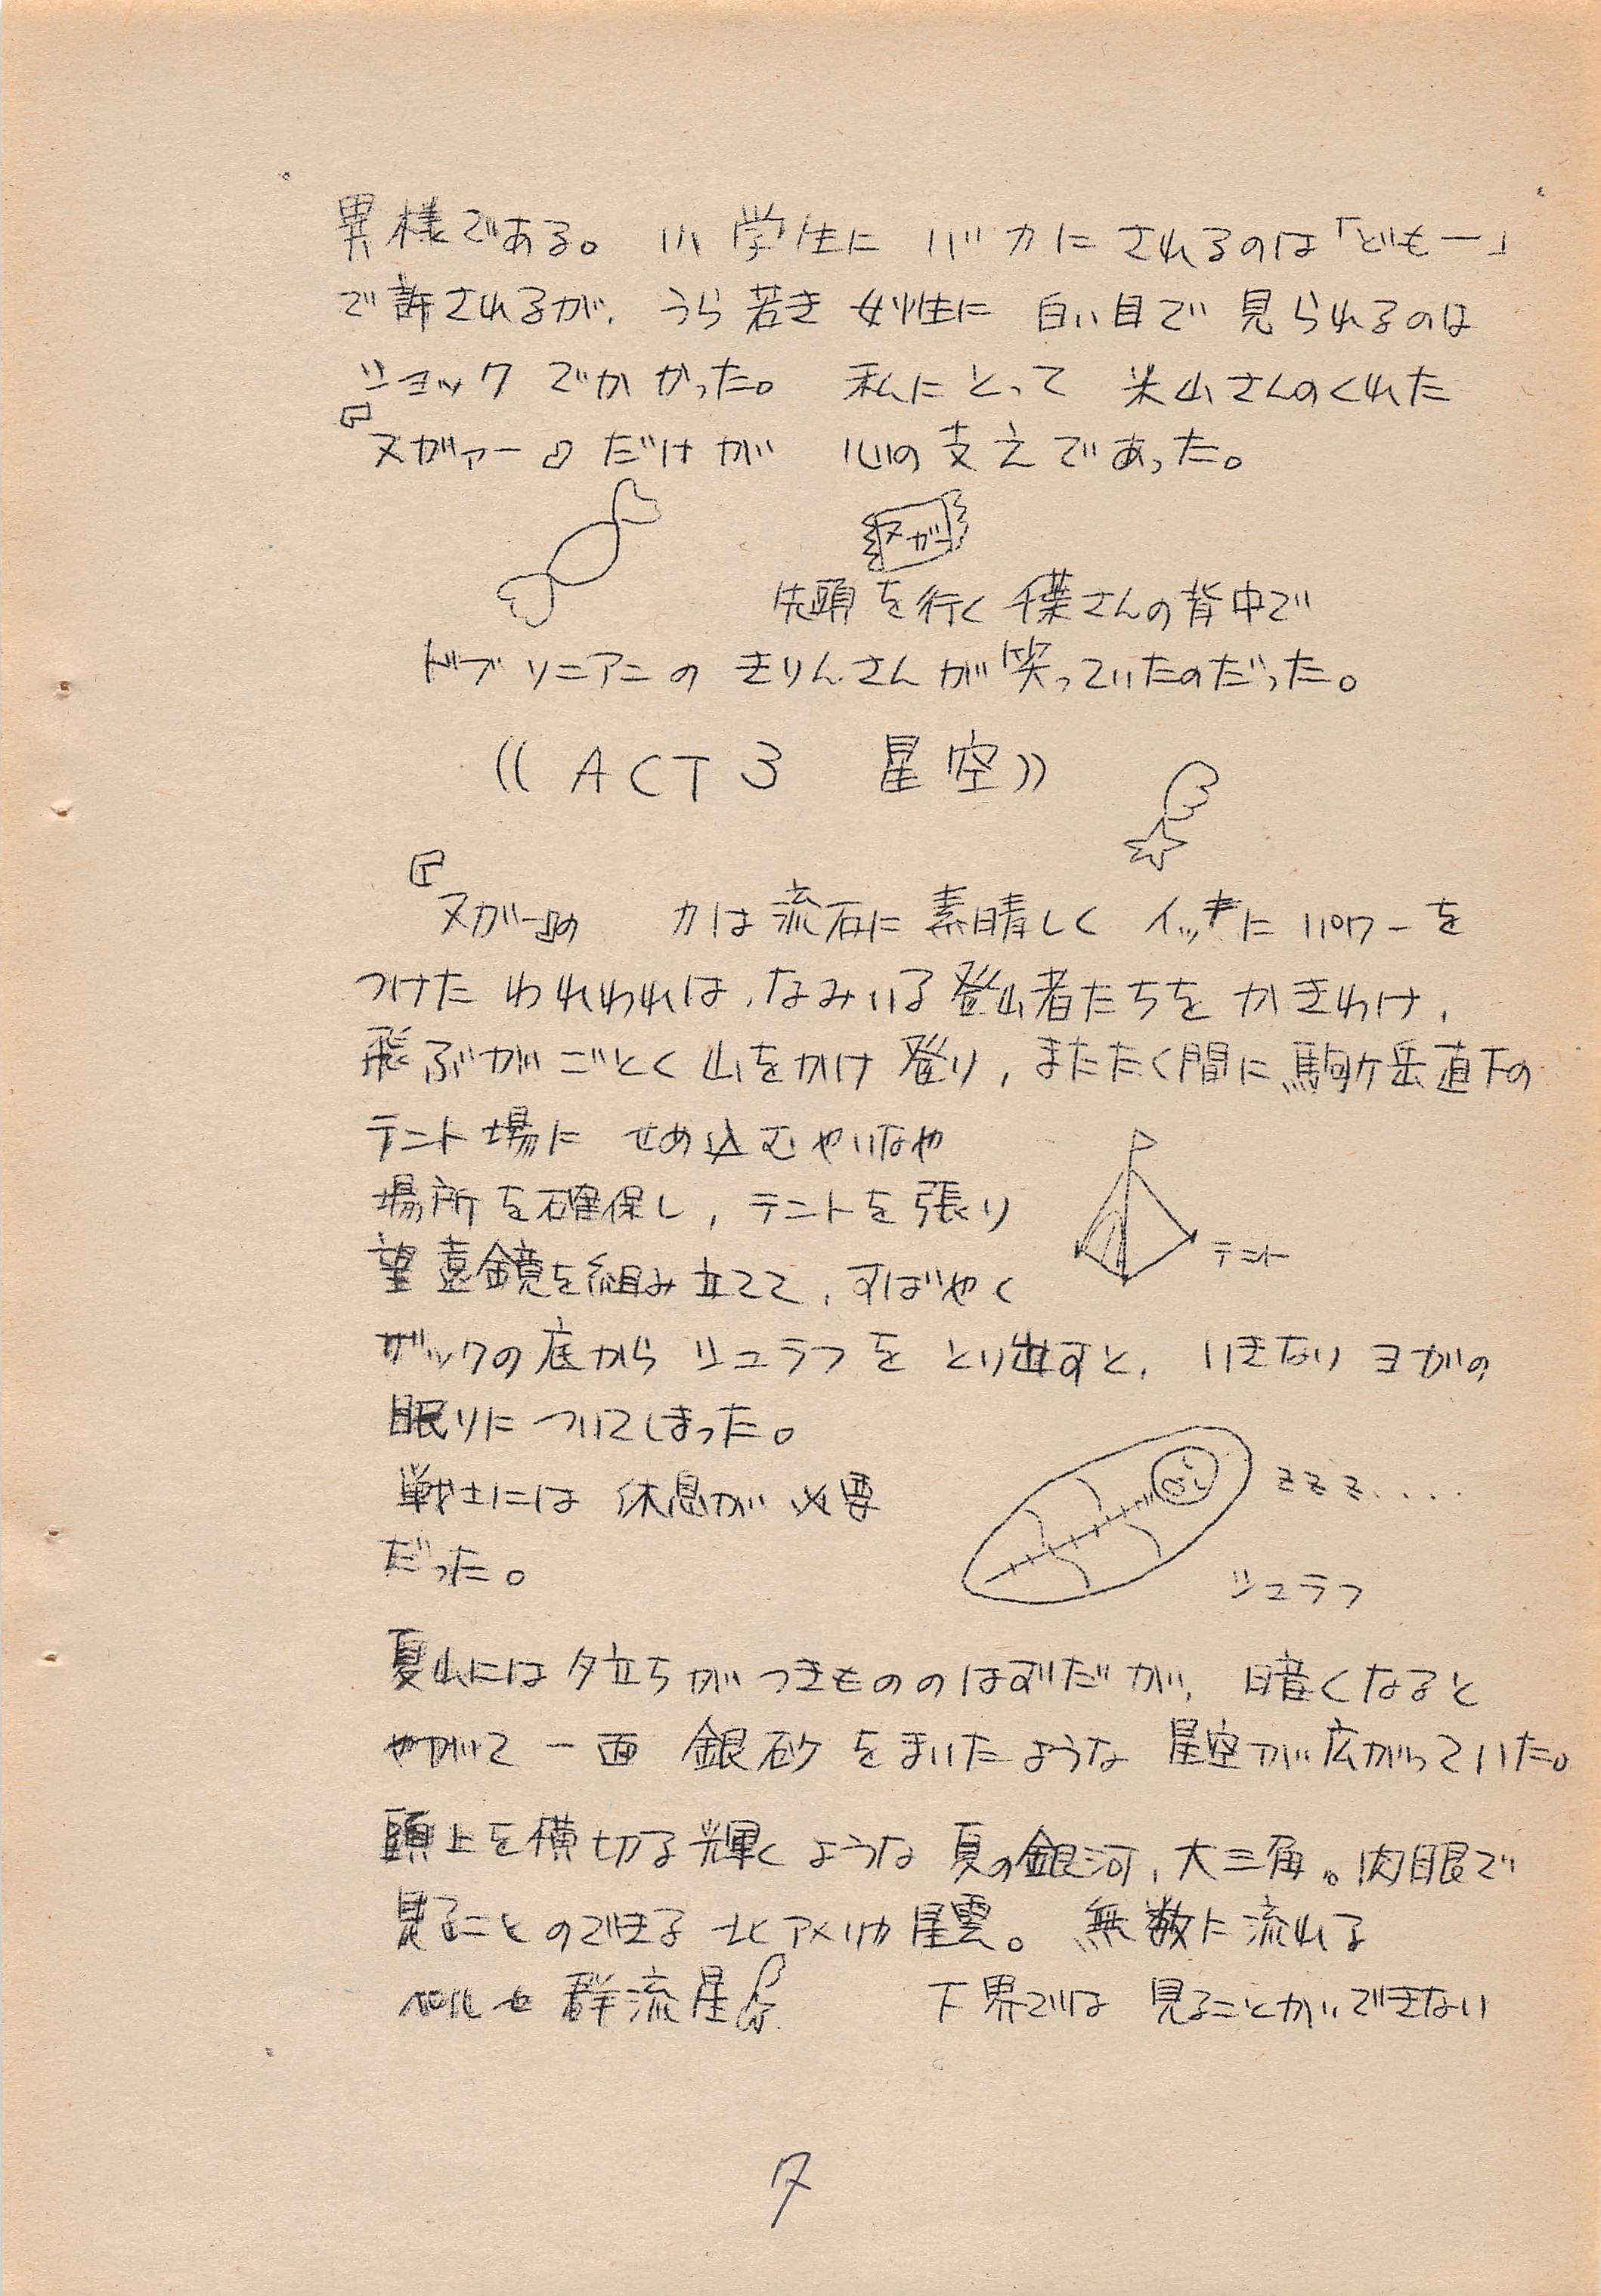 異様である。小学生にバカにされるのは「ども一」
で許されるが、うら若き女性に白い目で見られるのは
ショックでかかった。私にとって米山さんのくれた
『ヌガァー』だけが心の支えであった。
ヌガー
先頭を行く千葉さんの背中で
ドブソニアンのきりんさんが笑っていたのだった。
((ACT3 星空))
『ヌガー』の力は流石に素晴しくイッキにパワーを
つけたわれわれは、なみいる登山者たちをかきわけ、
飛ぶがごとく山をかけ登り、またたく間に駒ケ岳直下の
テント場にせめ込むやいなや
場所を確保し、テントを張り
テント
望遠鏡を組み立てて、すばやく
ザックの底からシュラフをとり出すと、いきなりヨガの
眠りについてしまった。
戦士には休息が必要
だった。
zzz....
シュラフ
夏山には夕立ちがつきもののはずだが、暗くなると
やがて一面銀砂をまいたような星空が広がっていた。
頭上を横切る輝くような夏の銀河、大三角。肉眼で
見ることのできる北アメリカ星雲。無数に流れる
ペルセ群流星 下界では見ることができない
7